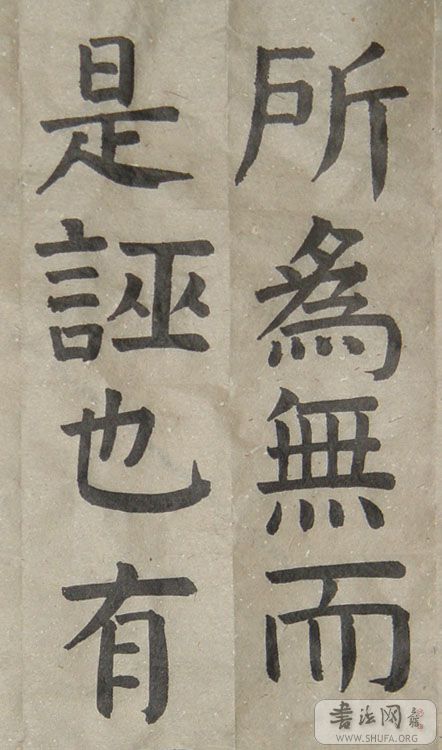 所為無而
是誣也有
書法网
WWW.SHUFA.ORG